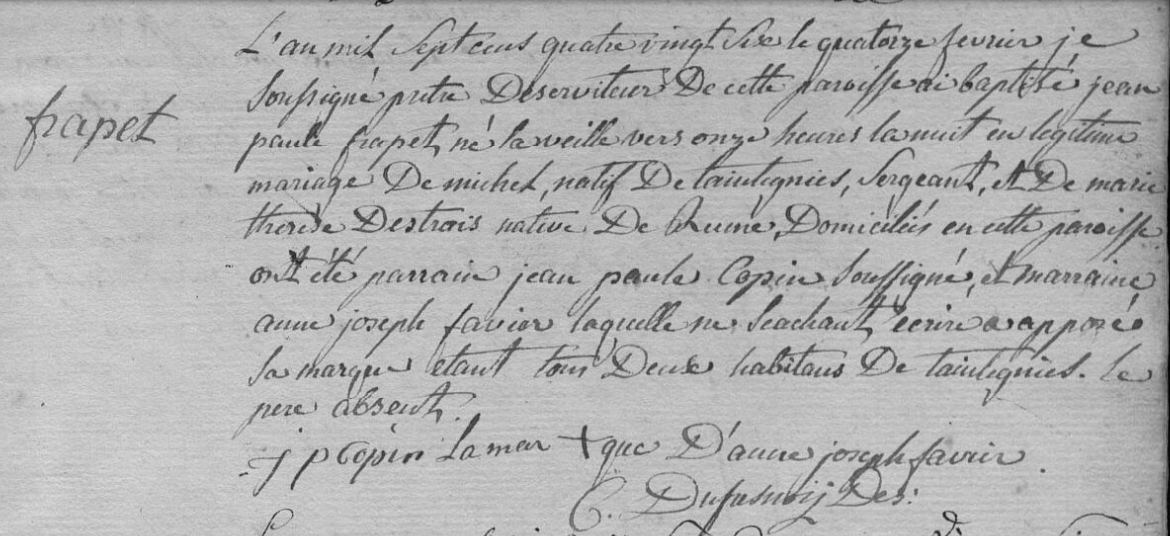 L'an mil sept cens quatre vingt six le quatorze fevrier je
frapet
soussigné pretre Deserviteur De cette paroisse ai baptisé jean
paule frapet, né la veille vers onze heures la nuit en legitime
mariage De michel, natif De taintignies, Sergeant, et De marie
therese Destrois native De Rume, Domiciliés en cette paroisse
ont été parrain jean paule Copin soussigné, et marraine
anne joseph favier laquelle ne scachant écrire a apposé
sa marque etant tous Deux habitans De taintignies. le
pere absent.
j p Copin La mar + que D'anne joseph favier
C. Dufasnoij Des: